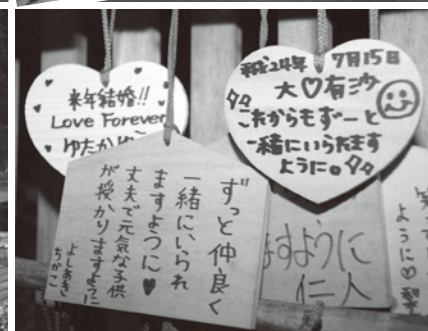 来年結婚!!
Love Forever
ゆたか
平成24年 7月15日
大♡有沙
これからもずーっと
一緒にいられます
ように。
ずっと仲良く
一緒にいられ
ますように♥
丈夫で元気な子供
が授かりますように
よしあき
ちかこ
ますように
仁人
ように♡